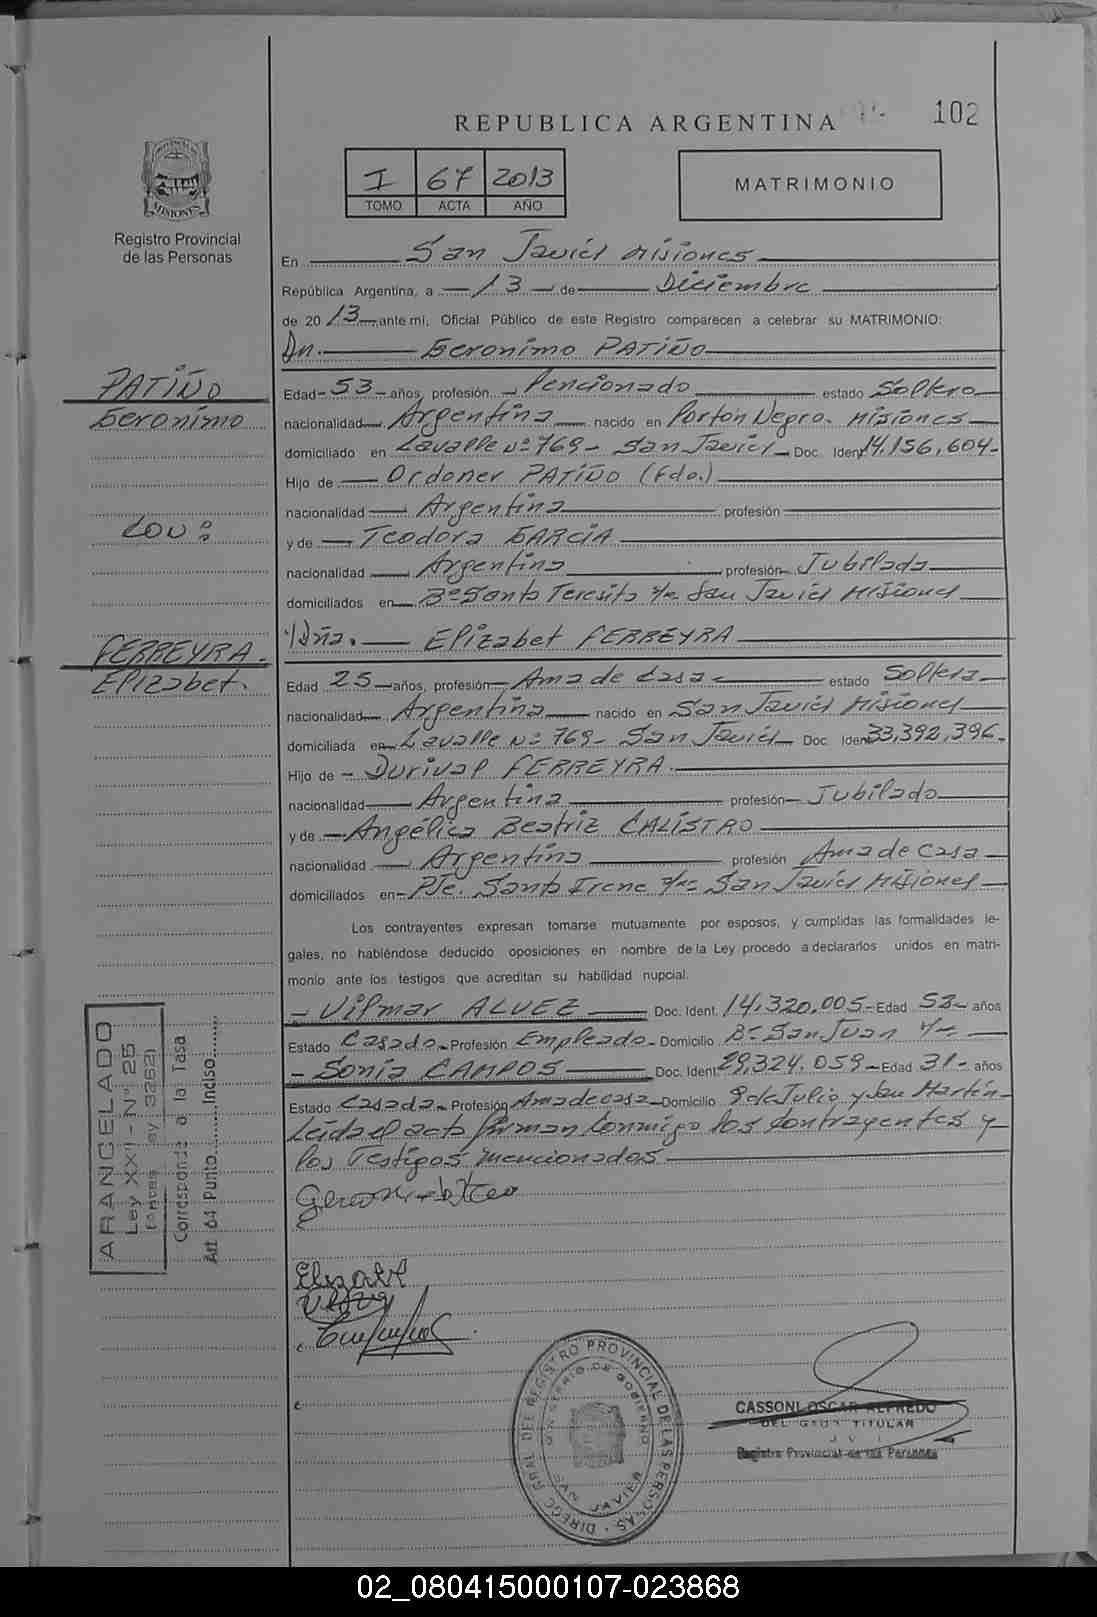 REPUBLICA ARGENTINA
102
I 67 2013
TOMO ACTA AÑO
MATRIMONIO
MISIONES
Registro Provincial
de las Personas
En San Javier Misiones
República Argentina, a 13 de Diciembre
de 2013 ante mi, Oficial Público de este Registro comparecen a celebrar su MATRIMONIO:
Dn. Geronimo PATIÑO
PATIÑO
Geronimo
CON:
FERREYRA.
Elizabet.
Edad 53 años, profesión Pencionado estado Soltero
nacionalidad Argentina nacido en Porton Negro. Misiones
domiciliado en Lavalle Nº 769 - San Javier Doc. Ident 14,156,604-
Hijo de Ordoner PATIÑO (Fdo.)
nacionalidad Argentina profesión
y de Teodora GARCIA
nacionalidad Argentina profesión Jubilada
domiciliados en Bº Santa Teresita San Javier Misiones
Y Dña. Elizabet FERREYRA
Edad 25 años, profesión Ama de Casa estado Soltera
nacionalidad Argentina nacido en San Javier Misiones
domiciliada en Lavalle Nº 769 - San Javier Doc. Ident 33,392,396-
Hijo de Durival FERREYRA.
nacionalidad Argentina profesión Jubilado
y de Angélica Beatriz CALISTRO
nacionalidad Argentina profesión Ama de Casa
domiciliados en Pje. Santa Irene San Javier Misiones
Los contrayentes expresan tomarse mutuamente por esposos, y cumplidas las formalidades le-
gales, no habiéndose deducido oposiciones en nombre de la Ley procedo a declararlos unidos en matri-
monio ante los testigos que acreditan su habilidad nupcial.
- Vilmar ALVEZ Doc. Ident. 14,320,005 - Edad 52 años
Estado Casado - Profesión Empleado - Domicilio Bº San Juan
- Sonia CAMPOS Doc. Ident 29,324,059 - Edad 31 - años
Estado Casada - Profesión Ama de casa - Domicilio 9 de Julio y San Martín
Leída el acta firman conmigo los contrayentes y
los Testigos mencionados
Elizabet
ARANCELADO
Ley XXI - Nº 25
(antes Ley 3262)
Corresponde a la Tasa
Art. 64 Punto Inciso
DIRECC GRAL DEL REGISTRO PROVINCIAL DE LAS PERSONAS
MINISTERIO DE GOBIERNO
SAN JAVIER
CASSONI OSCAR ALFREDO
TITULAR
Registro Provincial de las Personas
02_080415000107-023868